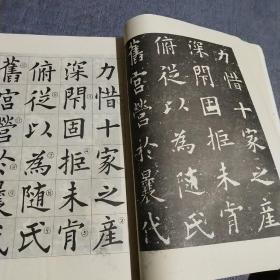 力惜十家之產
深閇固拒未肯
俯從以為隨氏
舊宮營於曩代
力惜十家之產
深閇固拒未肯
俯從以為隨氏
舊宮營於曩代